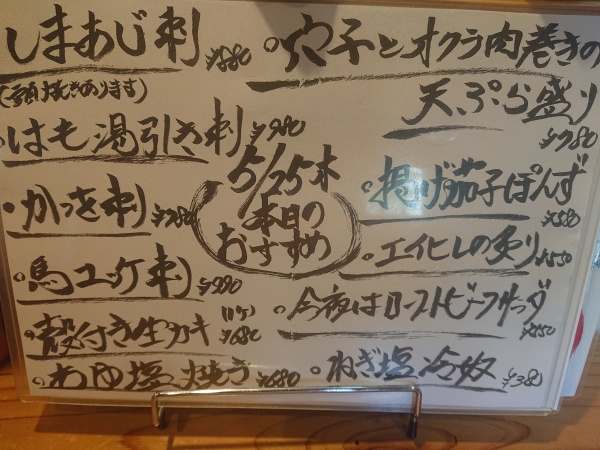 しまあじ刺 ¥880
(頭焼きあります)
はも湯引き刺 ¥980
かつを刺 ¥780
馬ユッケ刺 ¥980
殻付き生カキ (1ケ) ¥680
あゆ塩焼き ¥680
5/25木
本日の
おすすめ
穴子とオクラ肉巻きの
天ぷら盛り
¥780
揚げ茄子ぽんず
¥580
エイヒレの炙り ¥550
今夜はローストビーフサラダ
ねぎ塩冷奴 ¥380